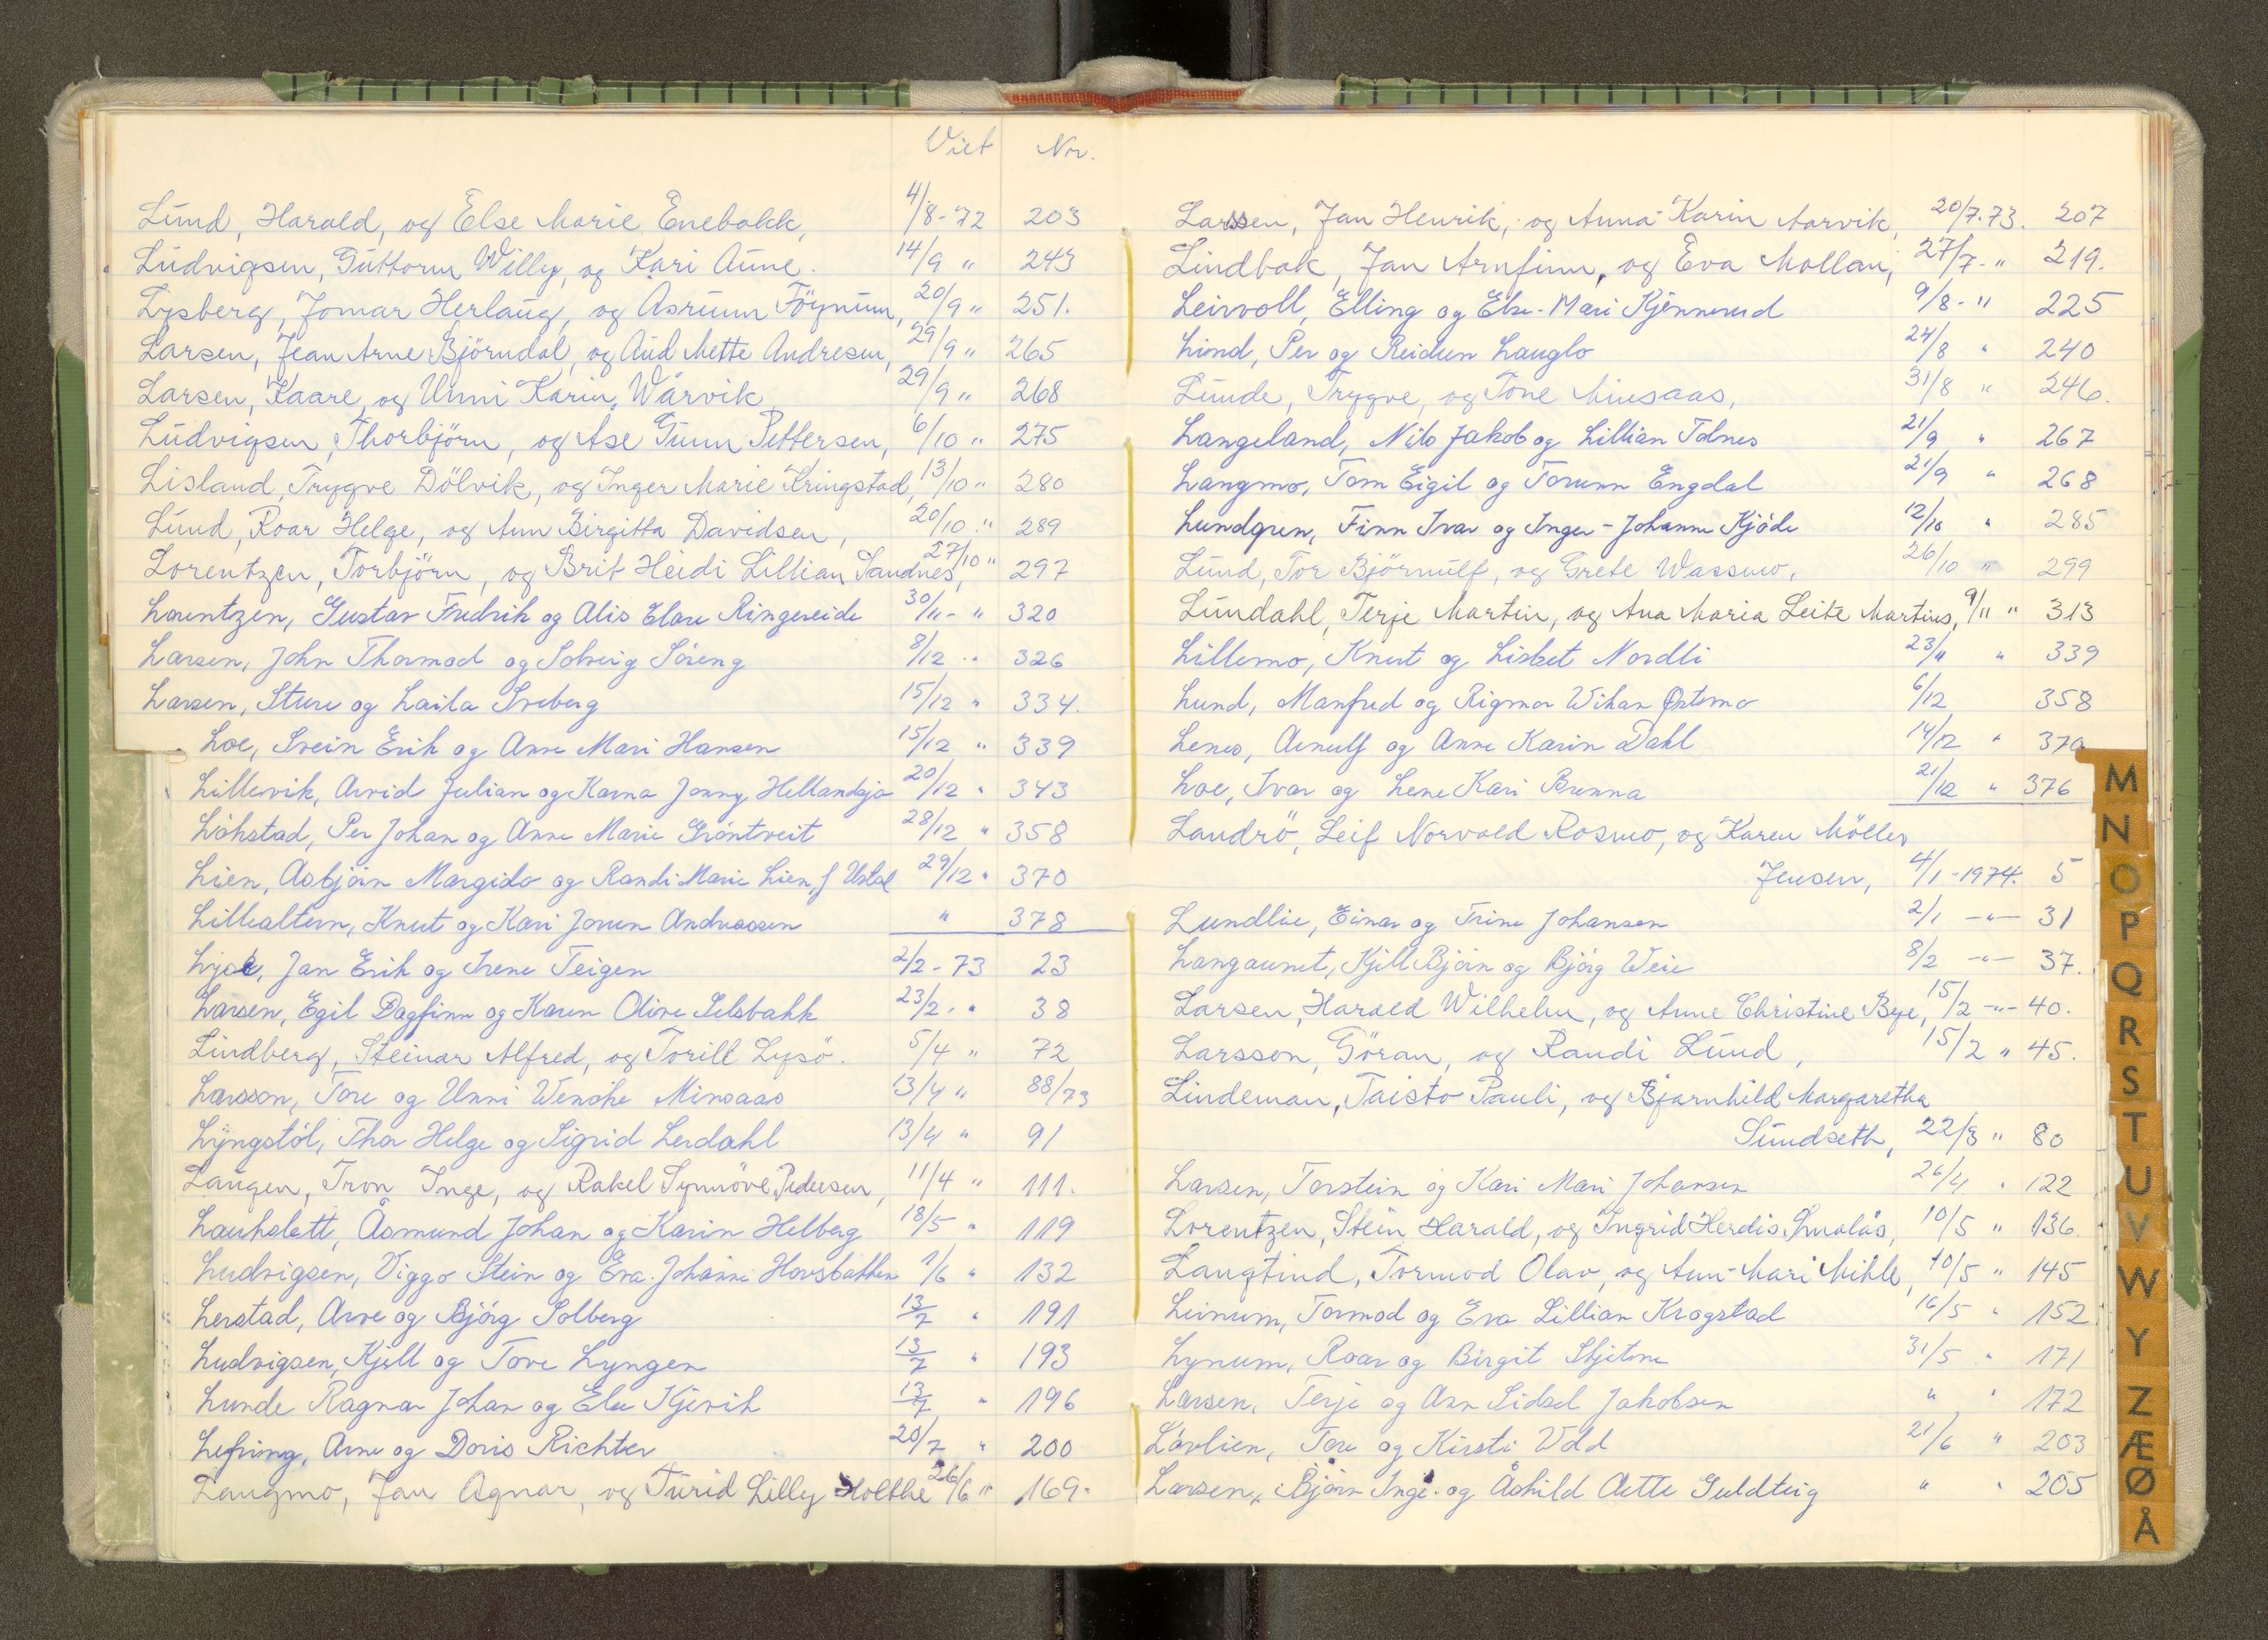 Viet Nr.
Lund, Harald, og Else Marie Enebakk, 4/8-72 203
Ludvigsen, Guttorm Willy, og Kari Aune. 14/9 " 243
Lysberg, Jomar Herlaug, og Asrunn Föynum, 20/9 " 251.
Larsen, Jean Arne Björndal, og Aud Mette Andresen, 29/9 " 265
Larsen, Kaare, og Unni Karin Wårvik 29/9 " 268
Ludvigsen, Thorbjörn, og Åse Gunn Pettersen, 6/10 " 275
Lisland, Trygve Dölvik, og Inger Marie Kringstad, 13/10 " 280
Lund, Roar Helge, og Ann Birgitta Davidsen, 20/10 " 289
Lorentzen, Torbjörn, og Brit Heidi Lillian Sandnes, 27/10 " 297
Lorentzen, Gustav Fredrik og Alis Elare Ringereide 30/11- " 320
Larsen, John Thormod og Solveig Söreng 8/12 " 326
Larsen, Sture og Laila Sveberg 15/12 " 334.
Loe, Svein Erik og Anne Mari Hansen 15/12 " 339
Lillevik, Arvid Julian og Karna Jonny Hellandsjø 20/12 " 343
Löhstad, Per Johan og Anne Marie Gröntveit 28/12 " 358
Lien, Asbjörn Margido og Randi Marie Lien, f Ustad 29/12 " 370
Lillealtern, Knut og Kari Jorun Andreassen " 378
Lysö, Jan Erik og Irene Teigen 2/2-73 23
Larsen, Egil Dagfinn og Karen Olive Selsbakk 23/2 " 38
Lindberg, Steinar Alfred, og Torill Lysö. 5/4 " 72
Larsson, Tore og Unni Wenche Minsaas 13/4 " 88/73
Lyngstöl, Thor Helge og Sigrid Lerdahl 13/4 " 91
Langen, Tron Inge, og Rakel Synnöve Pedersen, 11/4 " 111.
Laukslett, Åsmund Johan og Karin Helberg 18/5 " 119
Ludvigsen, Viggo Stein og Eva Johanne Hovsbakken 1/6 " 132
Lerstad, Arve og Björg Solberg 13/7 " 191
Ludvigsen, Kjell og Tove Lyngen 13/7 " 193
Lunde Ragnar Johan og Else Kjervik 13/7 " 196
Lefring, Arne og Doris Richter 20/7 " 200
Langmo, Jan Agnar, og Turid Lilly Holthe 26/6 " 169.
Larssen, Jan Henrik, og Anna-Karin Aarvik, 20/7.73. 207
Lindbak, Jan Arnfinn, og Eva Mollan, 27/7- " 219.
Leirvoll, Elling og Else-Mari Kjennerud 9/8- " 225
Lind, Per og Reidun Lauglo 24/8 " 240
Lunde, Trygve, og Tone Minsaas, 31/8 " 246.
Langeland, Nils Jakob og Lillian Tolnes 21/9 " 267
Langmo, Tom Eigil og Torunn Engdal 21/9 " 268
Lundgren, Finn Ivar og Inger-Johanne Kjöde 12/10 " 285
Lund, Tor Björnulf, og Grete Wassmo, 26/10 " 299
Lundahl, Terje Martin, og Ana Maria Leite Martins, 9/11 " 313
Lillemo, Knut og Lisbet Nordli 23/11 " 339
Lund, Manfred og Rigmor Wihan Östmo 6/12 358
Lenes, Arnulf og Anne Karin Dahl 14/12 " 370
Loe, Ivar og Lene Kari Brenna 21/12 " 376
Landrö, Leif Norvald Rosmo, og Karen Möller
Jensen, 4/1-1974. 5
Lundlie, Einar og Trine Johansen 2/1 -"- 31
Langaunet, Kjell Björn og Björg Weie 8/2 -"- 37.
Larsen, Harald Wilhelm, og Anne Christine Bye, 15/2 -"- 40.
Larsson, Göran, og Randi Lund, 15/2 " 45.
Lindeman, Taisto Pauli, og Bjarnhild Margaretha
Sundseth, 22/3 " 80
Larsen, Torstein og Kari Mari Johansen 26/4 " 122
Lorentzen, Stein Harald, og Ingrid Herdis Smalås, 10/5 " 136.
Langtind, Tormod Olav, og Ann-Mari Mihle, 10/5 " 145
Leinum, Tormod og Eva Lillian Krogstad 16/5 " 152
Lynum, Roar og Birgit Skjetne 31/5 " 171
Larsen, Terje og Ann Sidsel Jakobsen " " 172
Lövlien, Tore og Kirsti Udd 21/6 " 203
Larsen, Björn Inge og Åshild Aette Guldteig " " 205
M
N
O
P
Q
R
S
T
U
V
W
Y
Z
Æ
Ø
Å